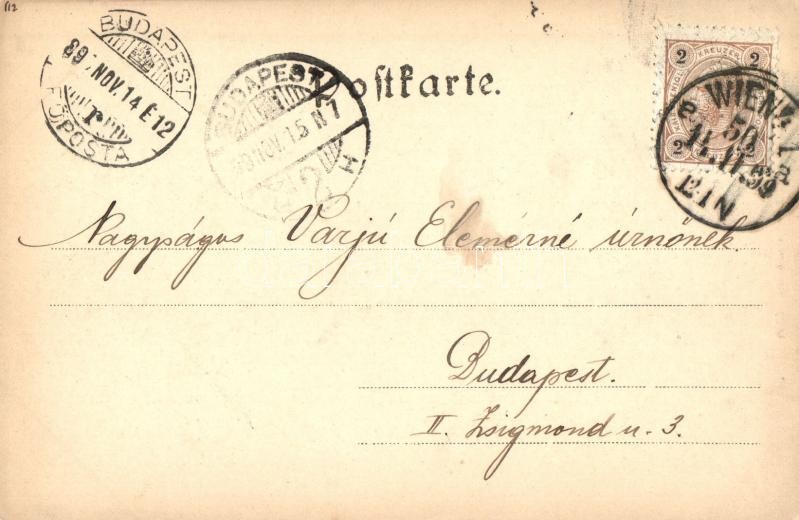 112
BUDAPEST
899 NOV. 14 É 12
FŐPOSTA
BUDAPEST
99 NOV. 15 N 7
Postkarte.
2 KREUZER 2
2 2
WIEN
50
14.11.99
12-1N
Nagyságos Varjú Elemérné úrnőnek
Budapest.
II. Zsigmond u. 3.